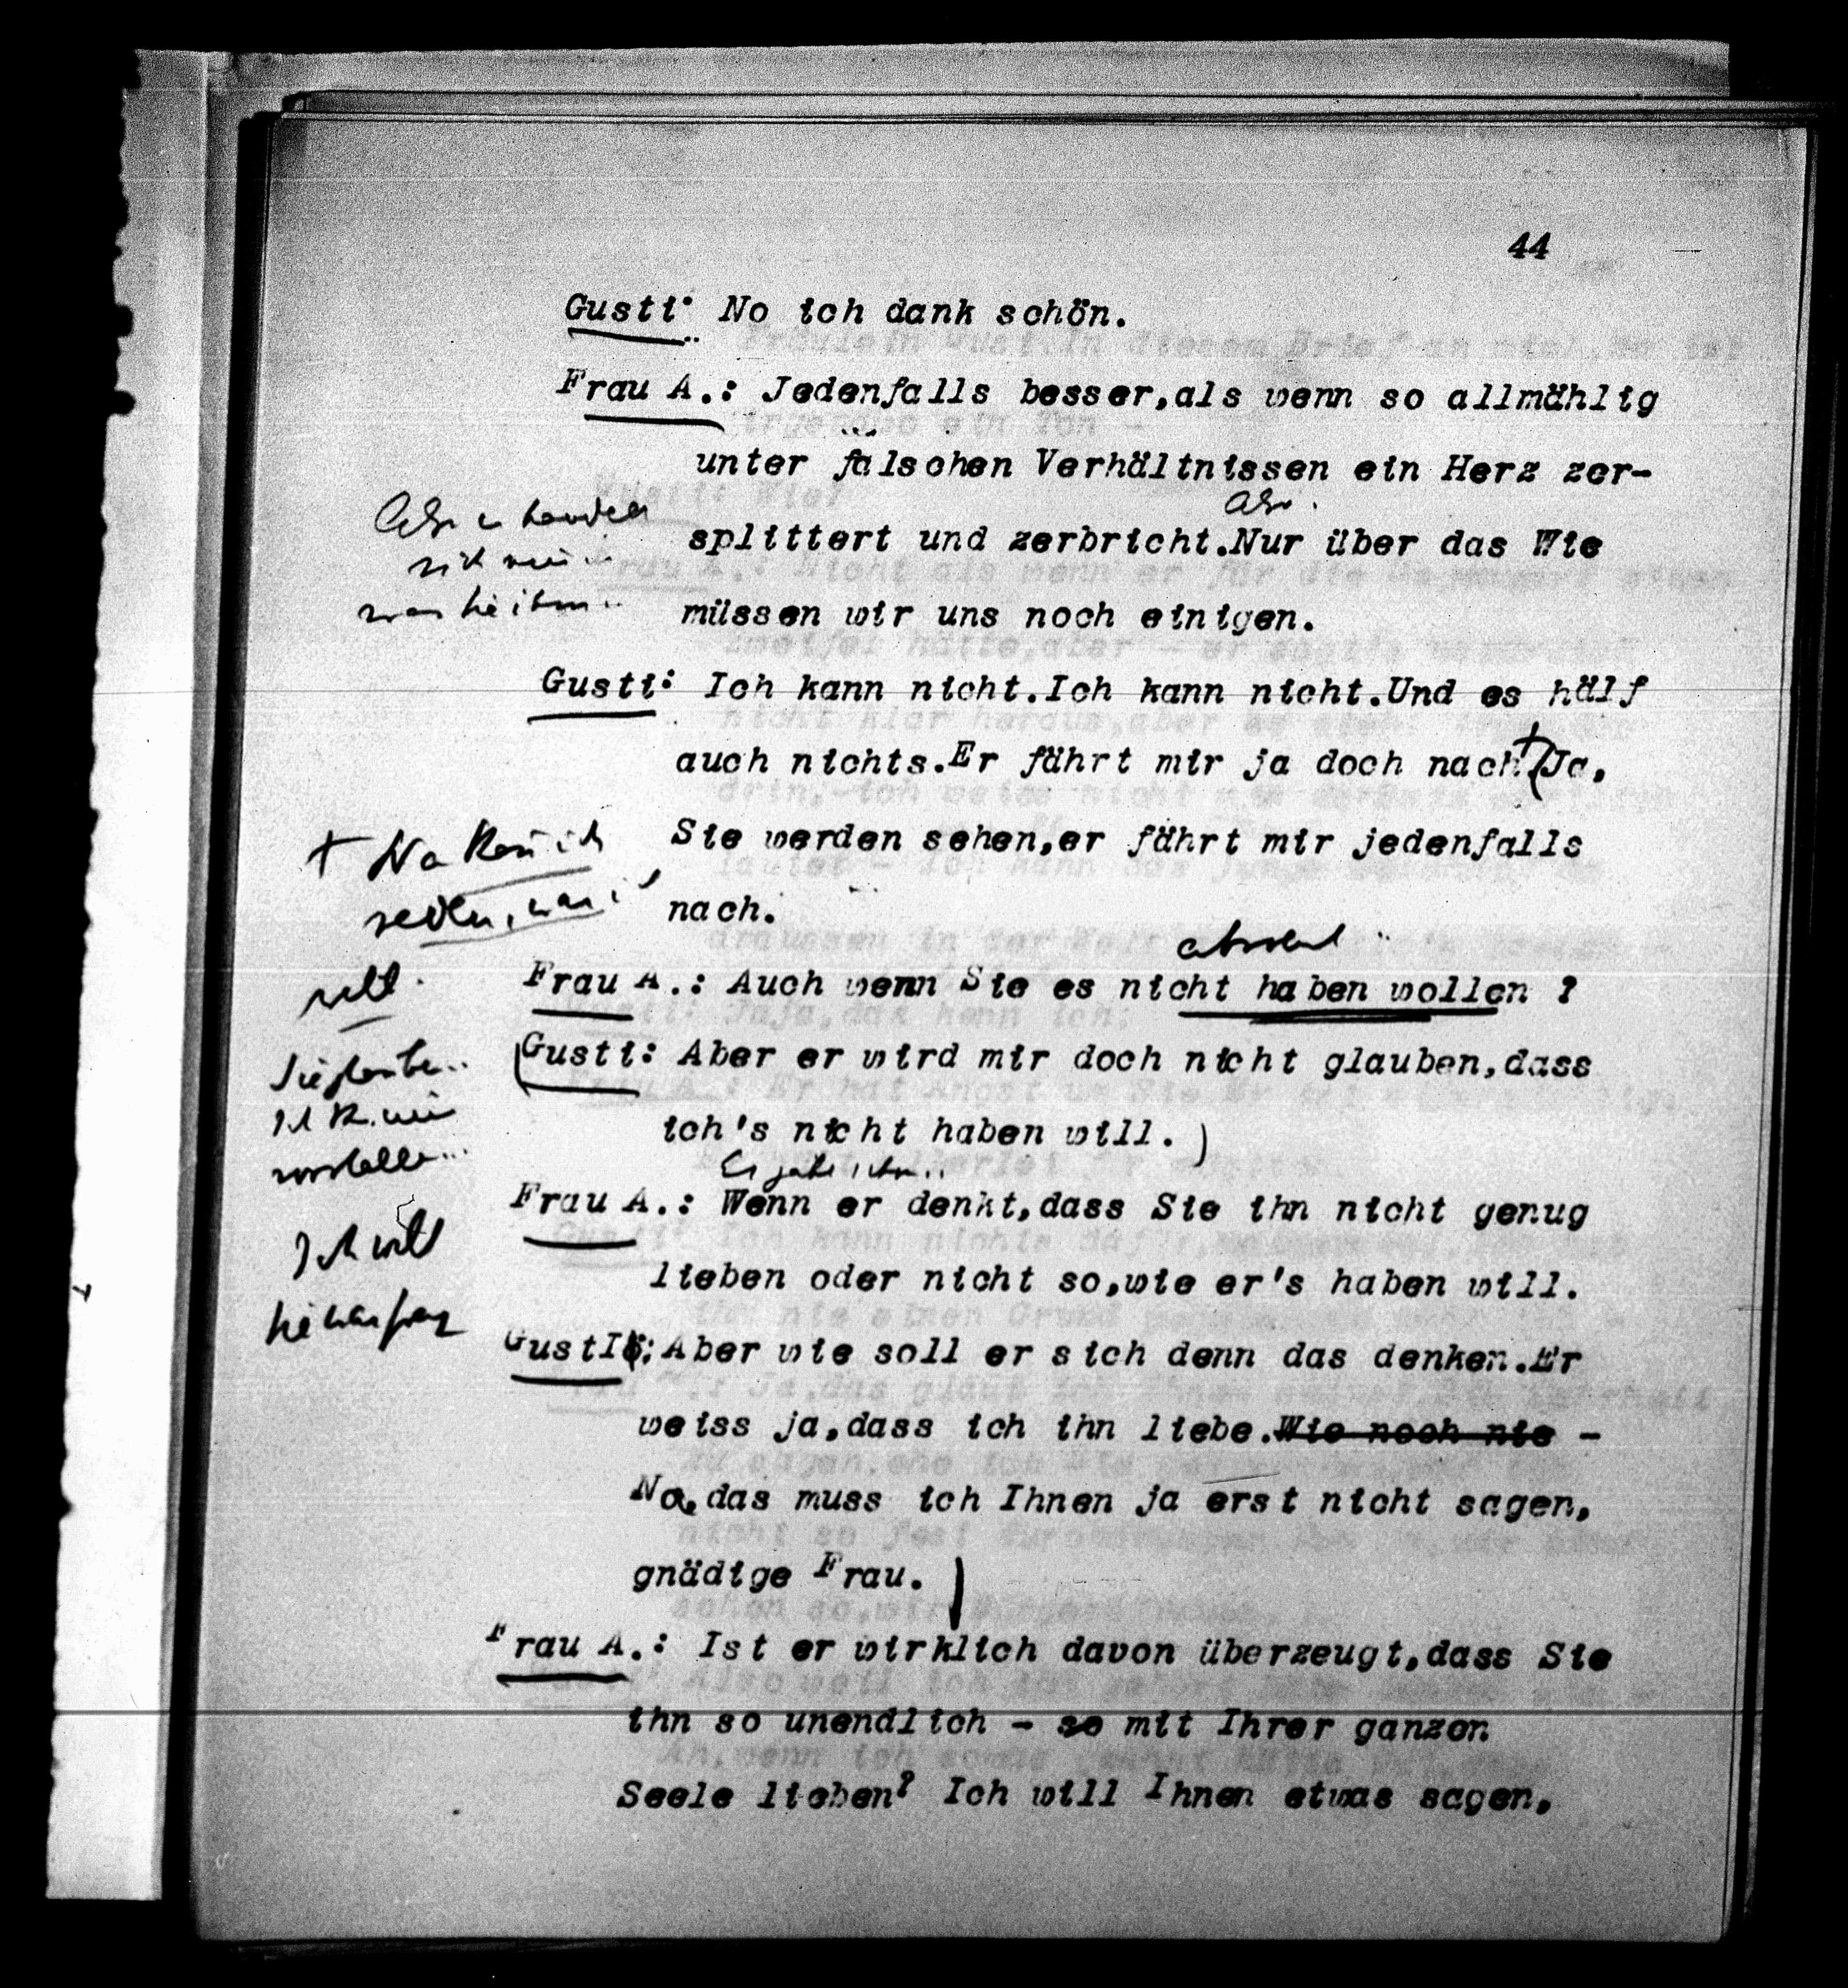 44
Gusti: No ich dank schön.
Frau A.: Jedenfalls besser,als wenn so allmählig
unter falschen Verhältnissen ein Herz zer-
Also
splittert und zerbricht.Nur über das Wie
müssen wir uns noch einigen.
Gusti: Ich kann nicht.Ich kann nicht.Und es hälf
auch nichts.Er fährt mir ja doch nach.(Ja,
Sie werden sehen,er fährt mir jedenfalls
+ Na kann ich
reden, was i
nach.
will.
absolut
Frau A.: Auch wenn Sie es nicht haben wollen ?
(Gusti: Aber er wird mir doch nicht glauben,dass
ich's nicht haben will.)
Frau A.: Wenn er denkt,dass Sie ihn nicht genug
lieben oder nicht so,wie er's haben will.
Ich will
GustI: Aber wie soll er sich denn das denken.Er
weiss ja,dass ich ihn liebe.Wie noch nie -
Na,das muss ich Ihnen ja erst nicht sagen,
gnädige Frau.)
Frau A.: Ist er wirklich davon überzeugt,dass Sie
ihn so unendlich - so mit Ihrer ganzen
Seele lieben? Ich will Ihnen etwas sagen,